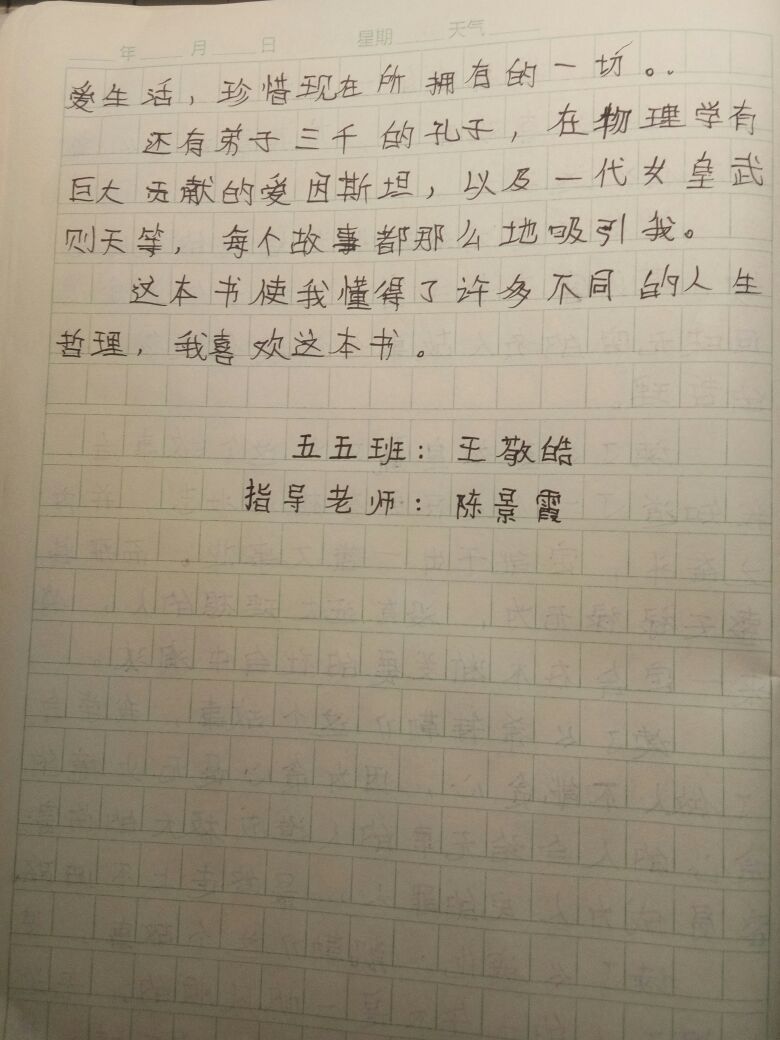 年 月 日 星期 天气
爱生活，珍惜现在所拥有的一切。.
还有弟子三千的孔子，在物理学有
巨大贡献的爱因斯坦，以及一代女皇武
则天等，每个故事都那么地吸引我。
这本书使我懂得了许多不同的人生
哲理，我喜欢这本书。
五五班：王敬皓
指导老师：陈景霞